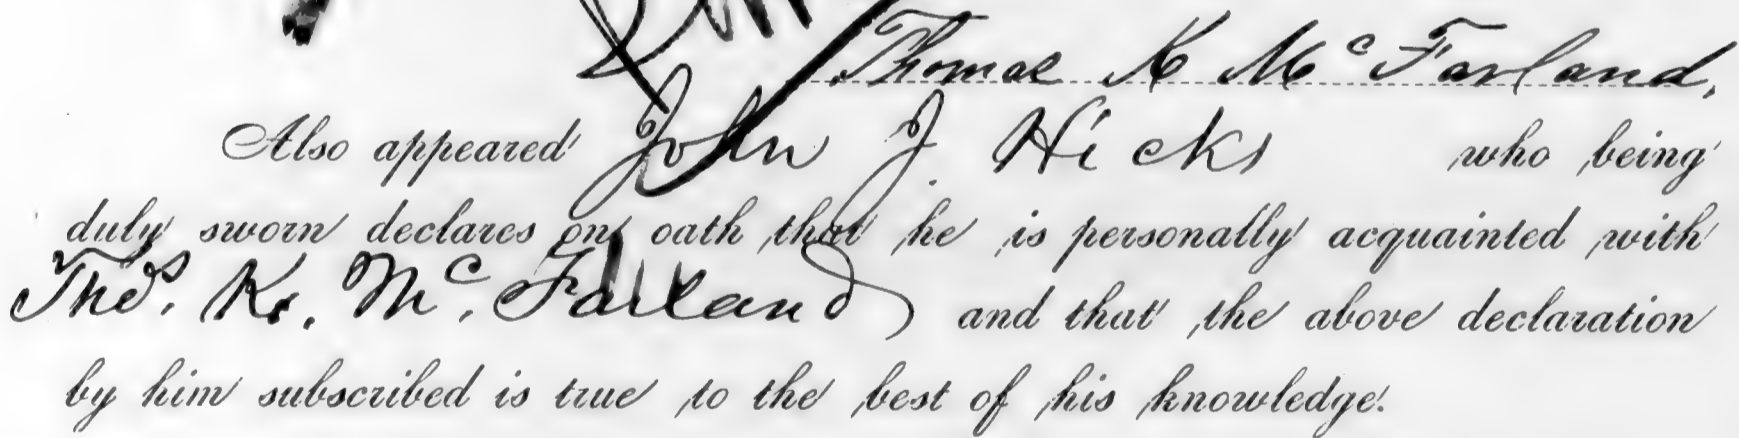 Thomas K McFarland,
Also appeared John J. Hicks who being
duly sworn declares on oath that he is personally acquainted with
Thos. K. Mc. Farland and that the above declaration
by him subscribed is true to the best of his knowledge.